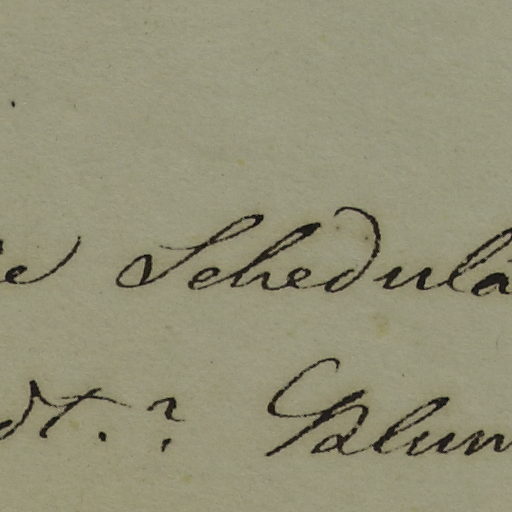 e Schedula
dt. ? Blum